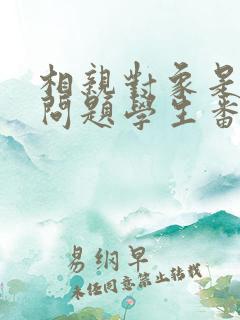 相親對象是
問題學生番
易綱早
未经同意禁止转载